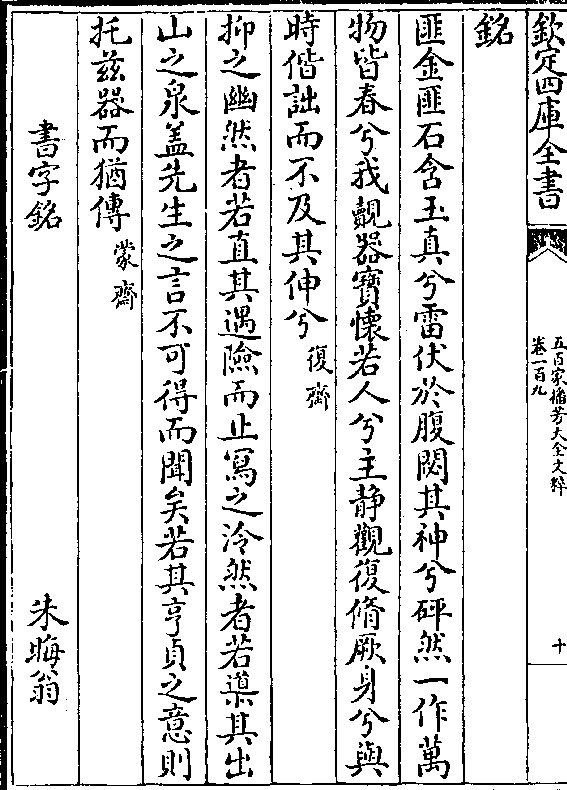 欽定四庫全書
五百家播芳大全文粹
卷一百九
十
銘
匪金匪石含玉真兮雷伏於腹閟其神兮砰然一作萬
物皆春兮我觀器寶懷若人兮主静觀復脩厥身兮與
時偕詘而不及其伸兮復齋
抑之幽然者若直其遇險而止寫之泠然者若導其出
山之泉盖先生之言不可得而聞矣若其亨貞之意則
托兹器而猶傳蒙齋
書字銘 朱晦翁